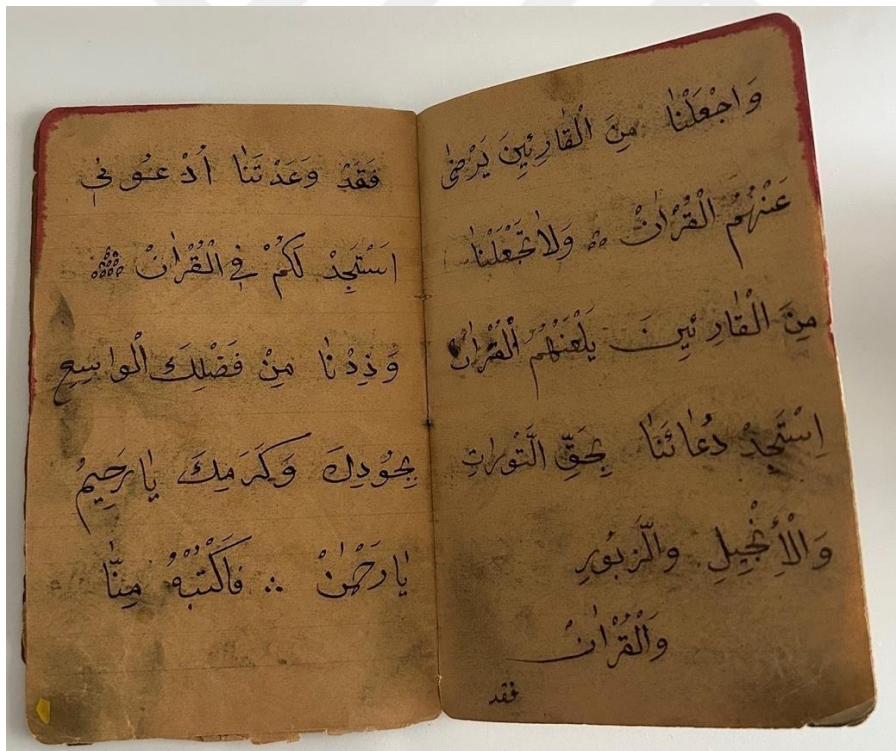 وَاجْعَلْنٰا مِنَ الْقٰارِئِينَ يَرْضٰى
عَنْهُمُ الْقُرْاٰنْ ؞ وَلاٰ تَجْعَلْنٰا
مِنَ الْقٰارِئِينَ يَلْعَنْهُمُ الْقُرْاٰنْ
اِسْتَجِدْ دُعٰائَنٰا بِحَقِّ التَّوْرٰاتِ
وَالْأِنْجِيلِ وَالزَّبُورِ
وَالْقُرْاٰنْ
فقد
فَقَدْ وَعَدْتَنٰا اُدْعُونِى
اَسْتَجِدْ لَكُمْ فِى الْقُرْاٰنْ
وَذِدْنٰا مِنْ فَضْلِكَ الْوٰاسِعِ
بِجُودِكَ وَكَرَمِكَ يٰا رَحِيمُ
يٰا رَحْمٰنْ ؞ فَاكْتُبْهُ مِنّٰا